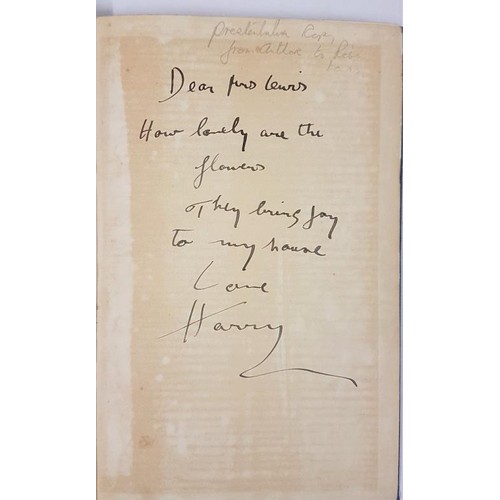 Presentation Copy
from author to
Dear Mrs Lewis
How lovely are the
flowers
They bring joy
to my house
Love
Harry